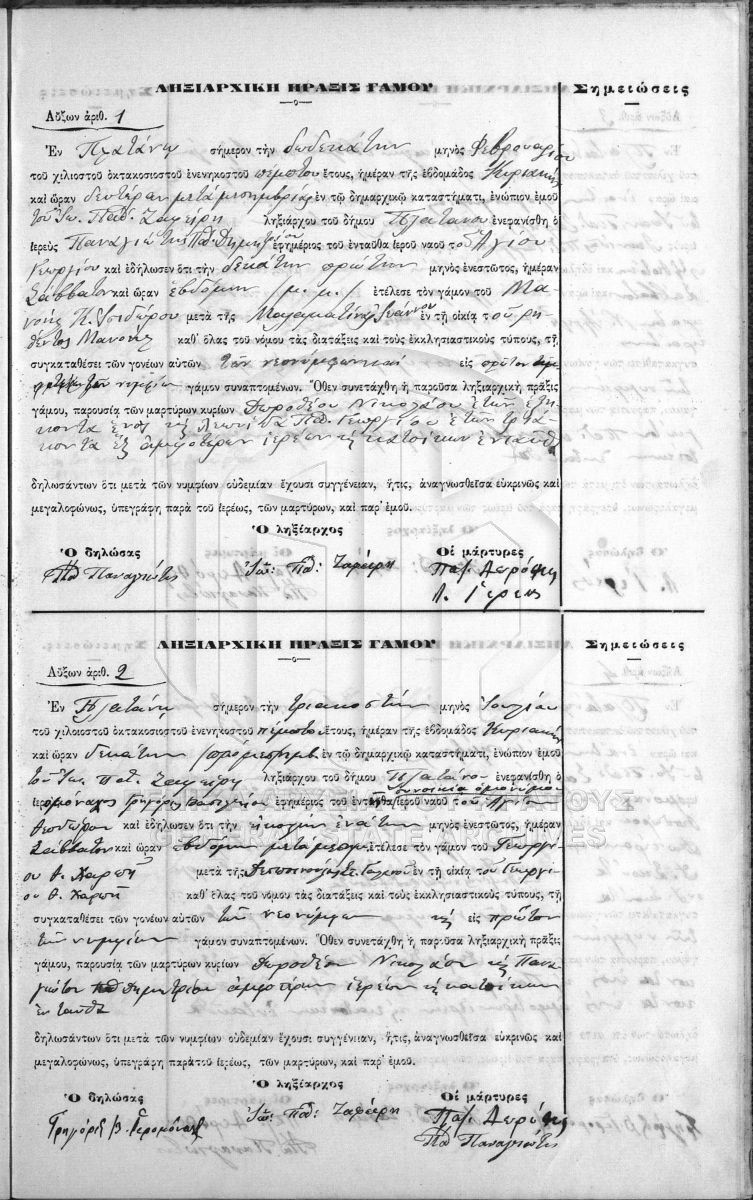 ΛΗΞΙΑΡΧΙΚΗ ΠΡΑΞΙΣ ΓΑΜΟΥ
Σημειώσεις
Αὔξων ἀριθ. 1
Ἐν Πλατάνῳ σήμερον τὴν δωδεκάτην μηνὸς Φεβρουαρίου
τοῦ χιλιοστοῦ ὀκτακοσιοστοῦ ἐνενηκοστοῦ πέμπτου ἔτους, ἡμέραν τῆς ἑβδομάδος Κυριακὴν
καὶ ὥραν δευτέραν μετὰ μεσημβρίαν ἐν τῷ δημαρχικῷ καταστήματι, ἐνώπιον ἐμοῦ
τοῦ Ἰω. Παπ. Ζαφείρη ληξιάρχου τοῦ δήμου Πλατάνου ἐνεφανίσθη ὁ
ἱερεὺς Παναγιώτης Πδ. Δημητρίου ἐφημέριος τοῦ ἐνταῦθα ἱεροῦ ναοῦ τοῦ Ἁγίου
Γεωργίου καὶ ἐδήλωσεν ὅτι τὴν δεκάτην πρώτην μηνὸς ἐνεστῶτος, ἡμέραν
Σάββατον καὶ ὥραν ἑβδόμην μ. μ. ἐτέλεσε τὸν γάμον τοῦ Μα-
νούσ μετὰ τῆς Ἰωάννου ἐν τῇ οἰκίᾳ τοῦ ρη-
θέντος καθ' ὅλας τοῦ νόμου τὰς διατάξεις καὶ τοὺς ἐκκλησιαστικοὺς τύπους, τῇ
συγκαταθέσει τῶν γονέων αὐτῶν τῶν νεονύμφων καὶ εἰς πρῶτον
τῶν νυμφίων γάμον συναπτομένων. Ὅθεν συνετάχθη ἡ παροῦσα ληξιαρχικὴ πρᾶξις
γάμου, παρουσίᾳ τῶν μαρτύρων κυρίων Δωροθέου Νικολάου ἐτῶν ἑξή-
κοντα ἑνὸς κ Λεωνίδα Παπ. Γεωργίου ἐτῶν τριά-
κοντα ἓξ ἀμφοτέρων ἱερέων κ κατοίκων ἐνταῦθα
δηλωσάντων ὅτι μετὰ τῶν νυμφίων οὐδεμίαν ἔχουσι συγγένειαν, ἥτις, ἀναγνωσθεῖσα εὐκρινῶς καὶ
μεγαλοφώνως, ὑπεγράφη παρὰ τοῦ ἱερέως, τῶν μαρτύρων, καὶ παρ' ἐμοῦ.
Ὁ ληξίαρχος
Ὁ δηλώσας Οἱ μάρτυρες
Πδ Παναγιώτης Ἰω: Πδ: Ζαφείρη
ΛΗΞΙΑΡΧΙΚΗ ΠΡΑΞΙΣ ΓΑΜΟΥ
Σημειώσεις
Αὔξων ἀριθ. 2
Ἐν Πλατάνῳ σήμερον τὴν τριακοστὴν μηνὸς Ἰουλίου
τοῦ χιλιοστοῦ ὀκτακοσιοστοῦ ἐνενηκοστοῦ πέμπτου ἔτους, ἡμέραν τῆς ἑβδομάδος Κυριακὴν
καὶ ὥραν δεκάτην ἐν τῷ δημαρχικῷ καταστήματι, ἐνώπιον ἐμοῦ
τοῦ Ἰω. Παπ. Ζαφείρη ληξιάρχου τοῦ δήμου Πλατάνου ἐνεφανίσθη ὁ
ἱερομόναχος Γρηγόριος Βασιλείου ἐφημέριος τοῦ ἐνταῦθα ἱεροῦ ναοῦ τοῦ Ἁγίου
Θεοδώρου καὶ ἐδήλωσεν ὅτι τὴν εἰκοστὴν ἐνάτην μηνὸς ἐνεστῶτος, ἡμέραν
Σάββατον καὶ ὥραν ἑβδόμην ἐτέλεσε τὸν γάμον τοῦ Γεωργί-
ου Θ. μετὰ τῆς ἐν τῇ οἰκίᾳ τοῦ Γεωργί-
ου Θ. καθ' ὅλας τοῦ νόμου τὰς διατάξεις καὶ τοὺς ἐκκλησιαστικοὺς τύπους, τῇ
συγκαταθέσει τῶν γονέων αὐτῶν τῶν νεονύμφων κ εἰς πρῶτον
τῶν νυμφίων γάμον συναπτομένων. Ὅθεν συνετάχθη ἡ παροῦσα ληξιαρχικὴ πρᾶξις
γάμου, παρουσίᾳ τῶν μαρτύρων κυρίων Δωροθέου Νικολάου κ Πανα-
γιώτου Πδ Δημητρίου ἀμφοτέρων ἱερέων κ κατοίκων
ἐνταῦθα
δηλωσάντων ὅτι μετὰ τῶν νυμφίων οὐδεμίαν ἔχουσι συγγένειαν, ἥτις, ἀναγνωσθεῖσα εὐκρινῶς καὶ
μεγαλοφώνως, ὑπεγράφη παρὰ τοῦ ἱερέως, τῶν μαρτύρων, καὶ παρ' ἐμοῦ.
Ὁ ληξίαρχος
Ὁ δηλώσας Οἱ μάρτυρες
Γρηγόριος Β. Ἱερομόναχος Ἰω: Πδ: Ζαφείρη
Πδ Παναγιώτης